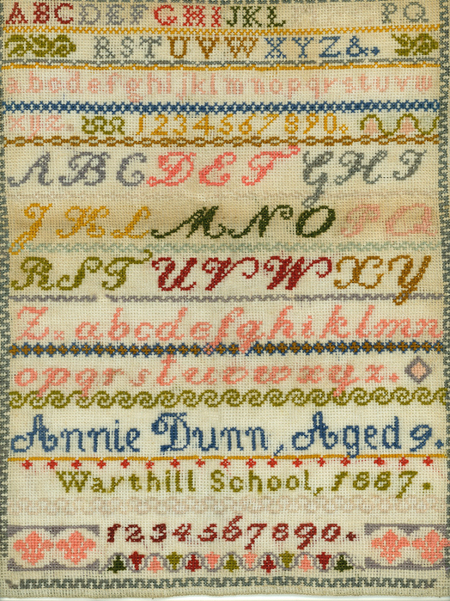 ABCDEFGHIJKL PQ
RSTUVWXYZ&.
abcdefghijklmnopqrstuvw
xyz. 1234567890.
ABCDEFGHI
JKLMNOPQ
RSTUVWXY
Zabcdefghiklmn
opqrstuvwxyz.
Annie Dunn, Aged 9.
Warthill School, 1887.
1234567890.